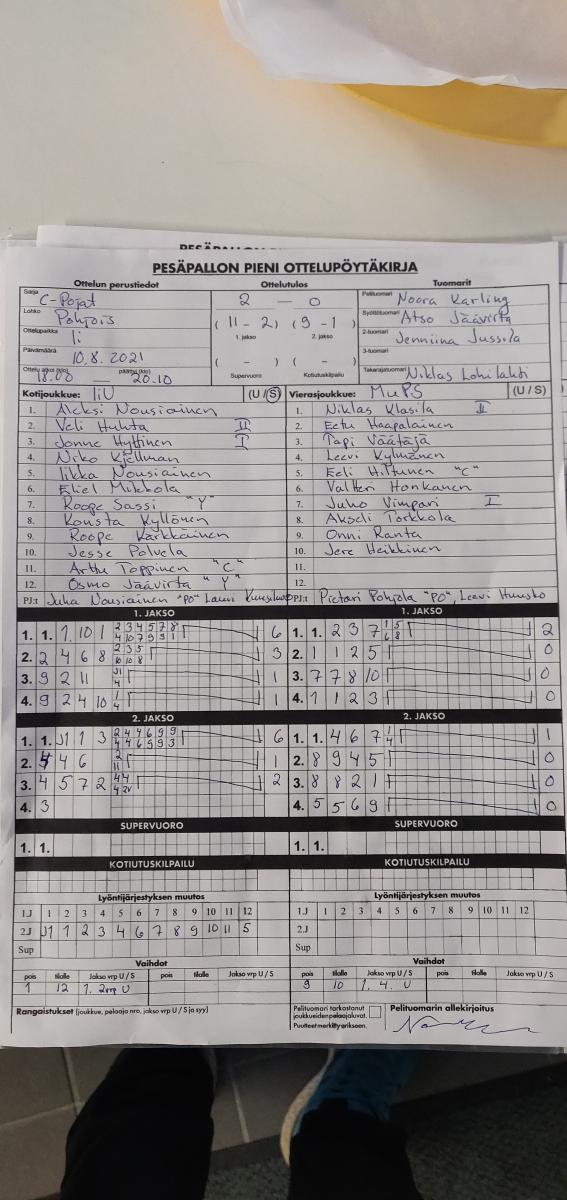 PESÄPALLON PIENI OTTELUPÖYTÄKIRJA
Ottelun perustiedot Ottelutulos Tuomarit
Sarja C-Pojat 2 — 0 Pelituomari Noora Karling
Lohko Pohjois (11 - 2) (9 - 1) Syöttötuomari Atso Jäävirta
Ottelupaikka Ii 1. jakso 2. jakso 2-tuomari Jenniina Jussila
Päivämäärä 10.8.2021 ( - ) ( - ) 3-tuomari
Ottelu alkoi (klo) 18.00 — päättyi (klo) 20.10 Supervuoro Kotiutuskilpailu Takarajatuomari Niklas Lohilahti
Kotijoukkue: IiU (U/S) Vierasjoukkue: MuPS (U / S)
1. Aleksi Nousiainen 1. Niklas Klasila II
2. Veli Huhta II 2. Eetu Haapalainen
3. Jonne Hyttinen I 3. Topi Väätäjä
4. Niko Kjellman 4. Leevi Kylmänen
5. Iikka Nousiainen 5. Eeli Hiltunen "C"
6. Eliel Mikkola 6. Valtteri Honkanen
7. Roope Sassi "Y" 7. Juho Vimpari I
8. Konsta Kyllönen 8. Akseli Torkkola
9. Roope Kärkkäinen 9. Onni Ranta
10. Jesse Polvela 10. Jere Heikkinen
11. Arttu Toppinen "C" 11.
12. Osmo Jäävirta "Y" 12.
PJ:t Juha Nousiainen "PO" Lauri PJ:t Pietari Pohjola "PO", Leevi Huusko
1. JAKSO 1. JAKSO
1. 1. 1 10 1 2 3 4 5 7 8 6 1. 1. 2 3 7 1 5 2
4 10 7 9 9 1 6 8
2. 2 4 6 8 2 3 5 3 2. 1 1 2 5 0
10 10 8
3. 9 2 11 J1 1 3. 7 7 8 10 0
4
4. 9 2 4 10 1 1 4. 1 1 2 3 0
4
2. JAKSO 2. JAKSO
1. 1. J1 1 3 2 4 4 6 9 9 6 1. 1. 4 6 7 1 1
4 4 6 9 9 3 4
2. 4 4 6 2 1 2. 8 9 4 5 0
11
3. 4 5 7 2 4 4 2 3. 8 8 2 1 0
4 2V
4. 3 4. 5 5 6 9 0
SUPERVUORO SUPERVUORO
1. 1. 1. 1.
KOTIUTUSKILPAILU KOTIUTUSKILPAILU
Lyöntijärjestyksen muutos Lyöntijärjestyksen muutos
1.J 1 2 3 4 5 6 7 8 9 10 11 12 1.J 1 2 3 4 5 6 7 8 9 10 11 12
2.J J1 1 2 3 4 6 7 8 9 10 11 5 2.J
Sup Sup
Vaihdot Vaihdot
pois tilalle Jakso vrp U / S pois tilalle Jakso vrp U / S pois tilalle Jakso vrp U / S pois tilalle Jakso vrp U / S
1 12 1. 2vrp U 9 10 1. 4. U
Rangaistukset (joukkue, pelaaja nro, jakso vrp U / S ja syy) Pelituomari tarkastanut Pelituomarin allekirjoitus
joukkueiden pelaajaluvat.
Puutteet merkitty erikseen.